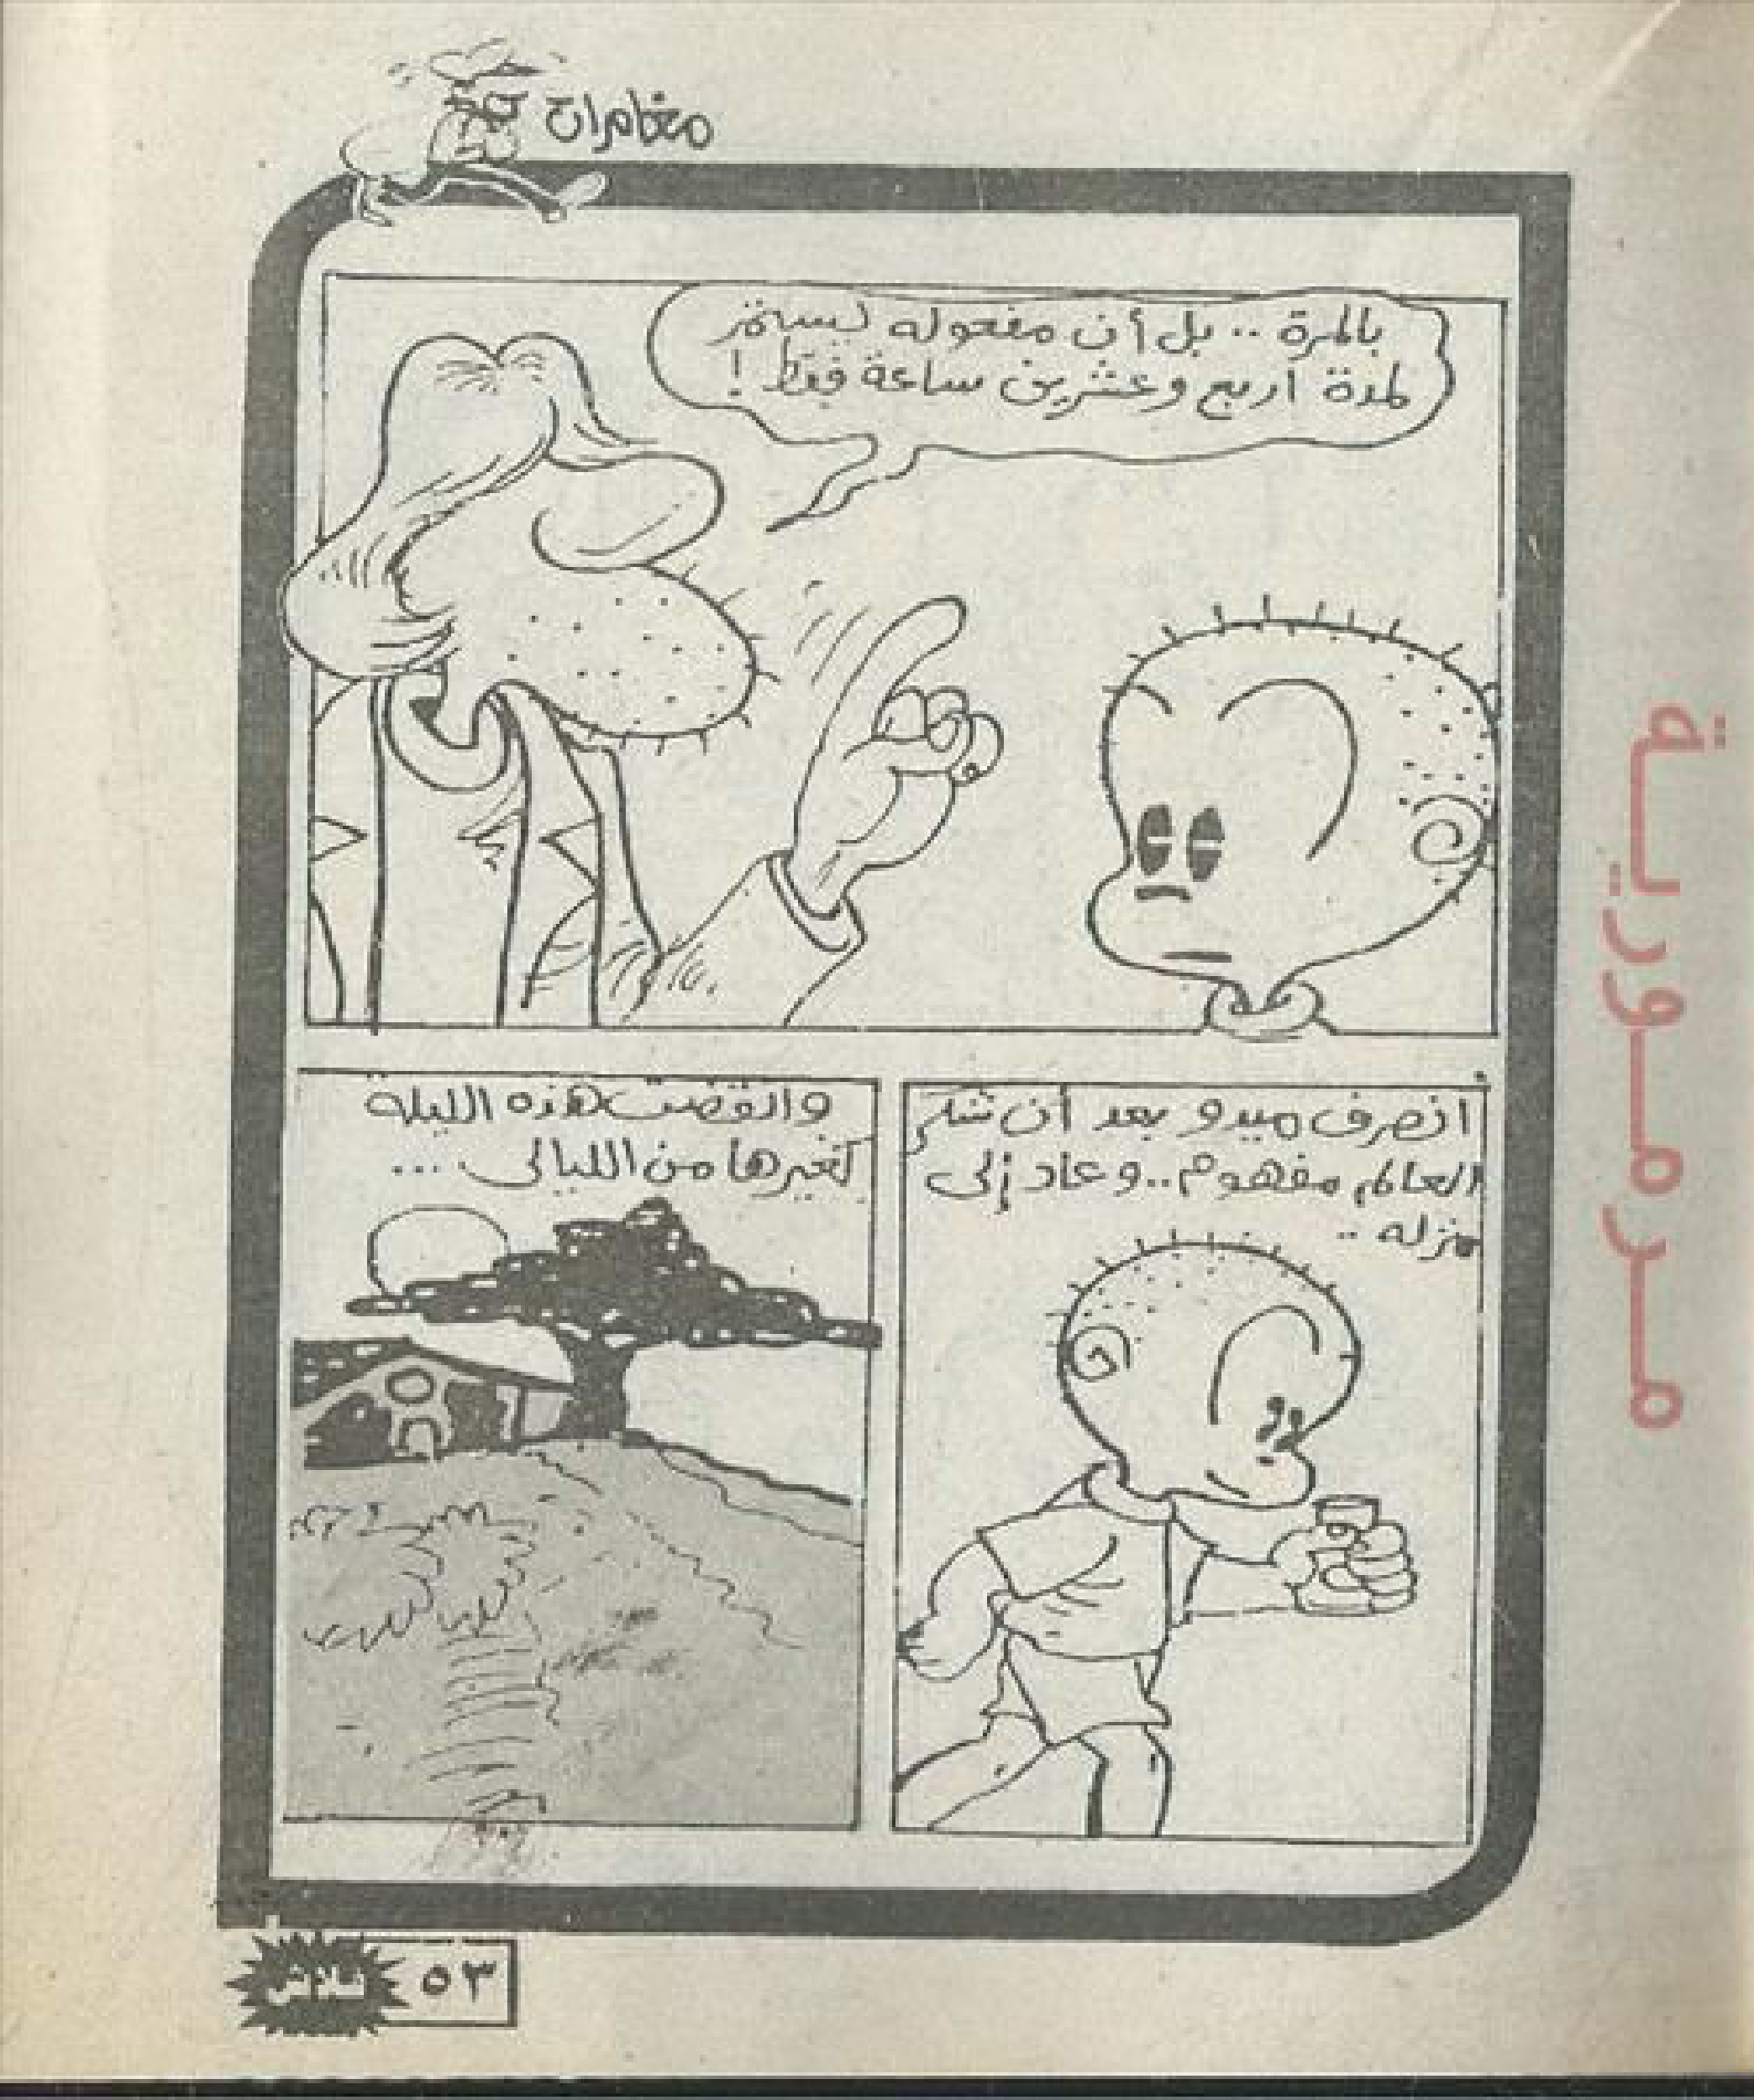 مغامرات
بالمرة .. بل أن مفعوله ليستمر
لمدة أربع وعشرين ساعة فقط !
انصرف ميدو بعد أن شكر
العالم مفهوم .. وعاد إلى
منزله ..
وانقضت هذه الليلة
كغيرها من الليالى ....
مرمورية
٥٣
فلاش